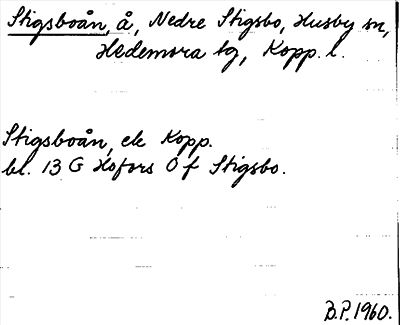 Stigsboån, å, Nedre Stigsbo, Husby sn,
Hedemora tg, Kopp. l.
Stigsboån, ek Kopp.
bl. 13 G Hofors Ö f Stigsbo.
B.P. 1960.